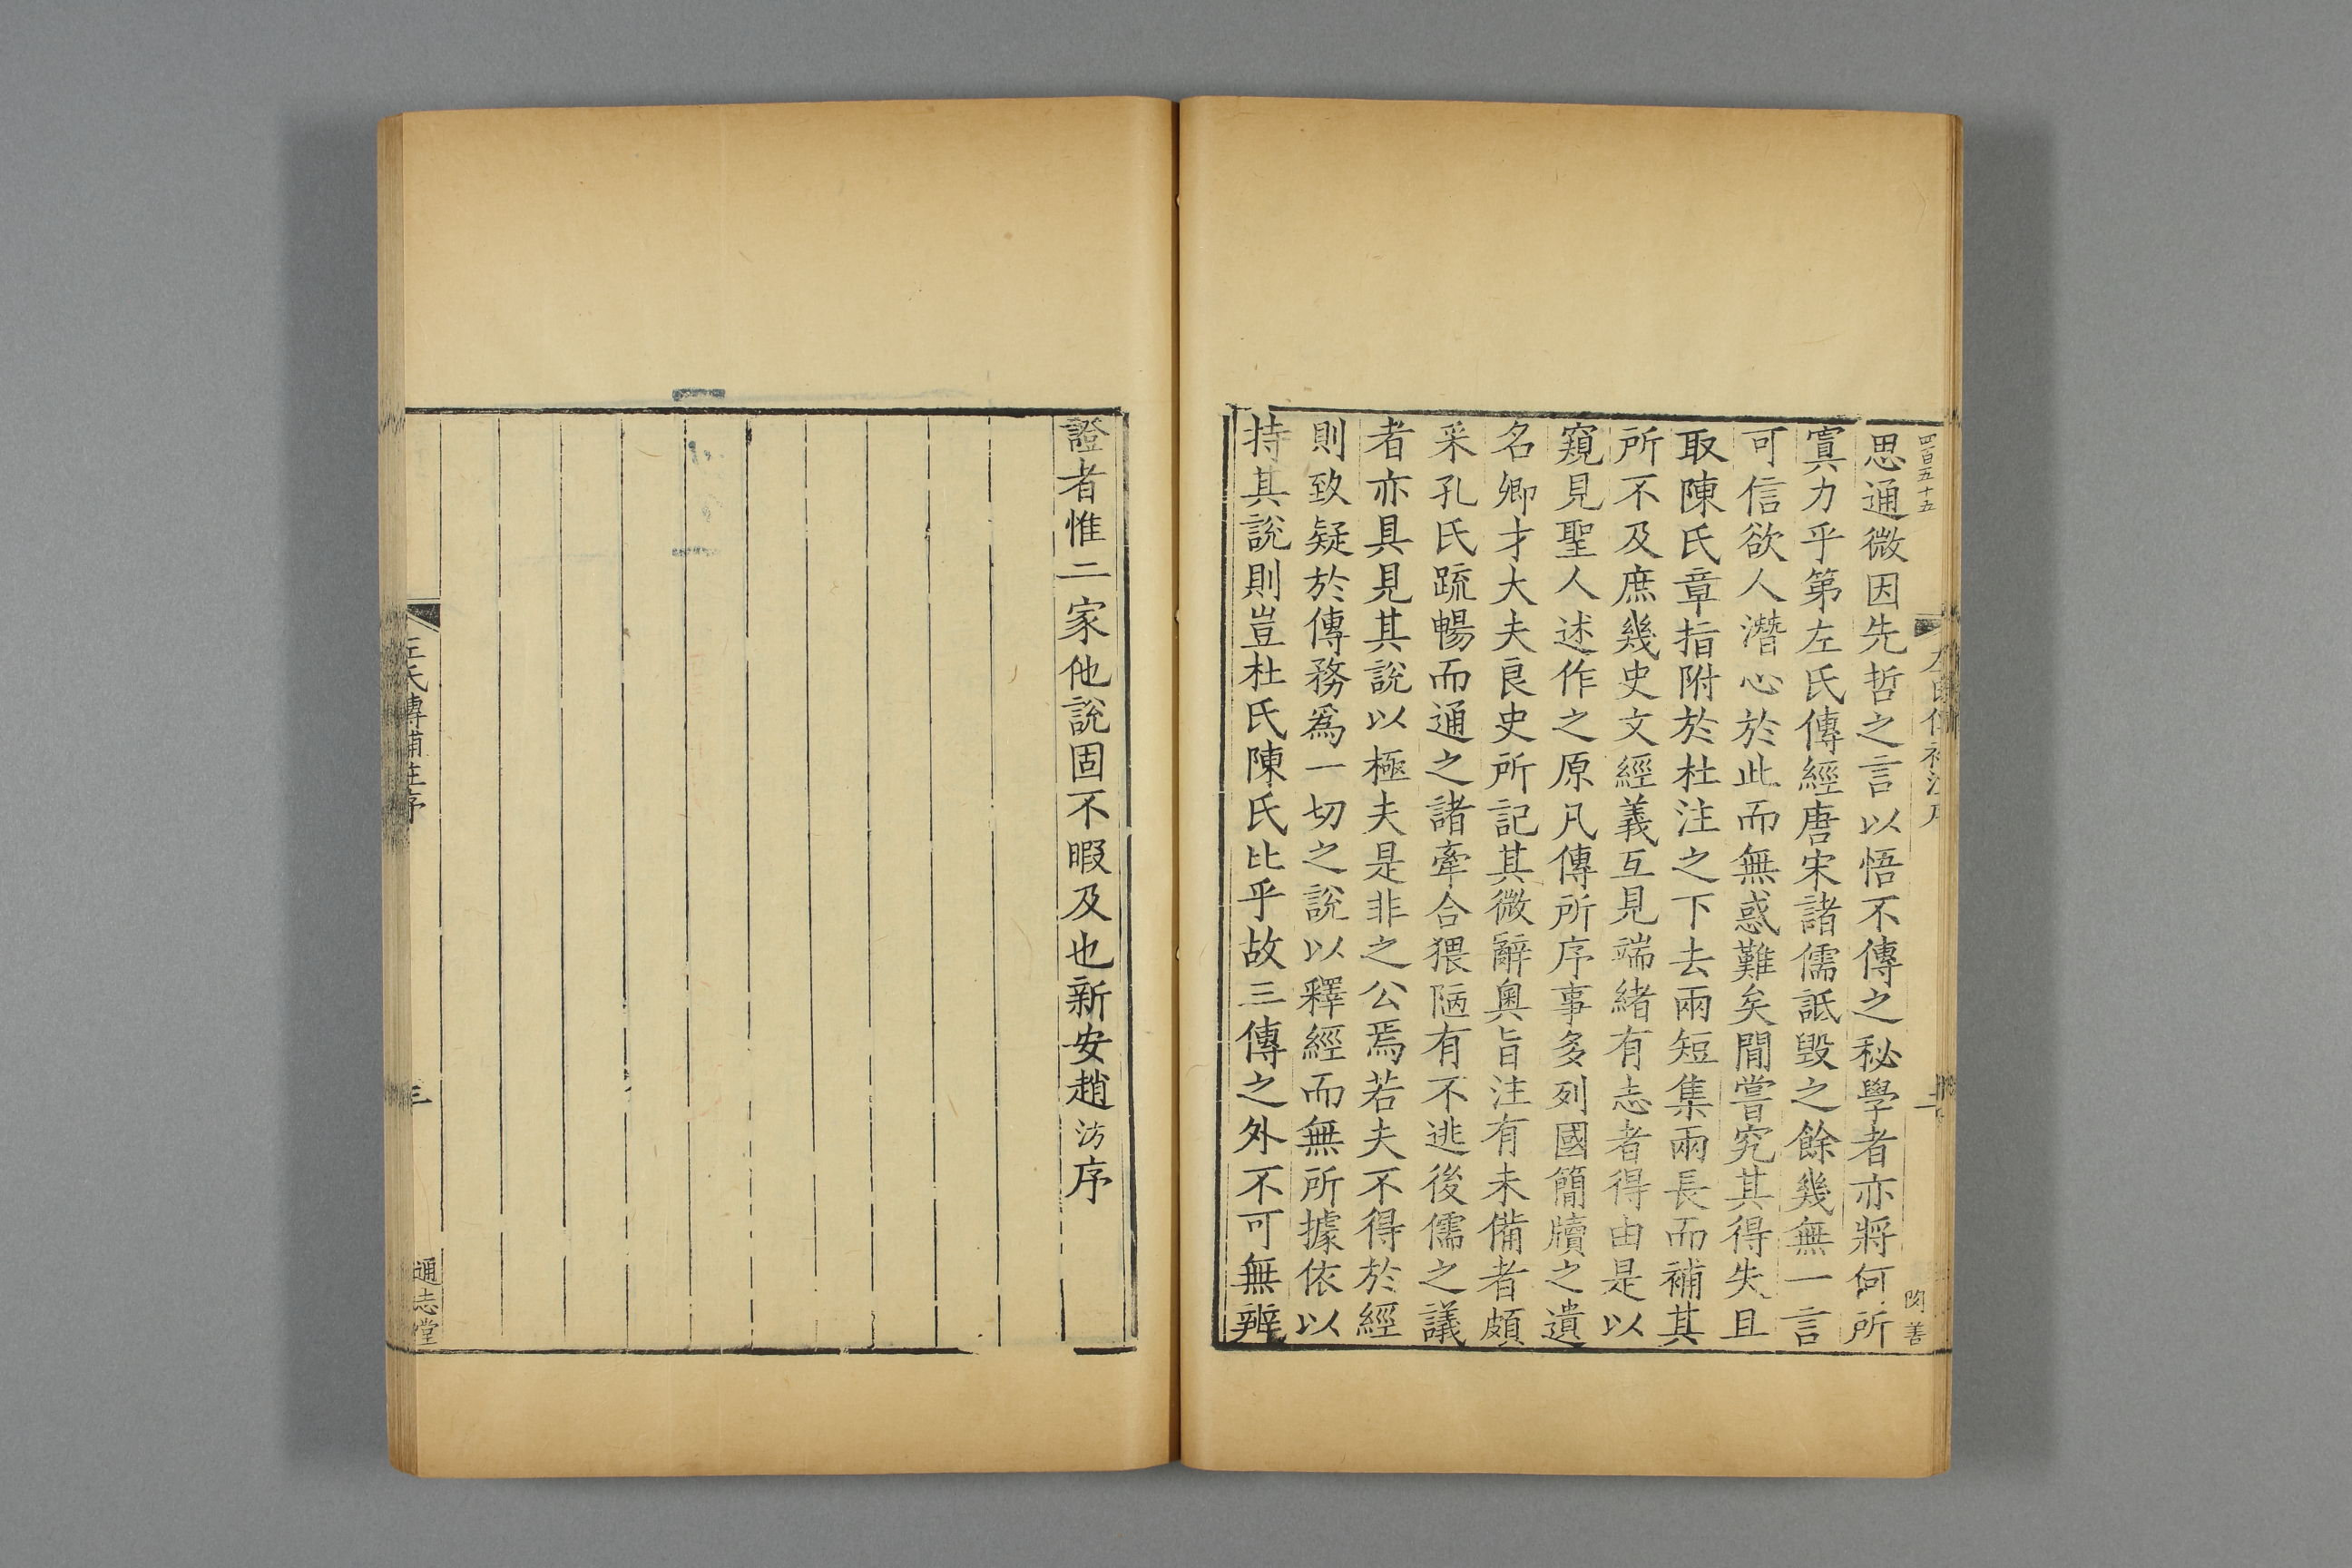 四百五十五
思通微因先哲之言以悟不傳之秘學者亦將何所
寘力乎第左氏傳經唐宋諸儒詆毀之餘幾無一言
可信欲人潛心於此而無惑難矣閒嘗究其得失且
取陳氏章指附於杜注之下去兩短集兩長而補其
所不及庶幾史文經義互見端緒有志者得由是以
窺見聖人述作之原凡傳所序事多列國簡牘之遺
名卿才大夫良史所記其微辭奧旨注有未備者頗
采孔氏疏暢而通之諸牽合猥陋有不逃後儒之議
者亦具見其說以極夫是非之公焉若夫不得於經
則致疑於傳務爲一切之說以釋經而無所據依以
持其說則豈杜氏陳氏比乎故三傳之外不可無辨
證者惟二家他說固不暇及也新安趙汸序
左氏傳補注序
三
通志堂